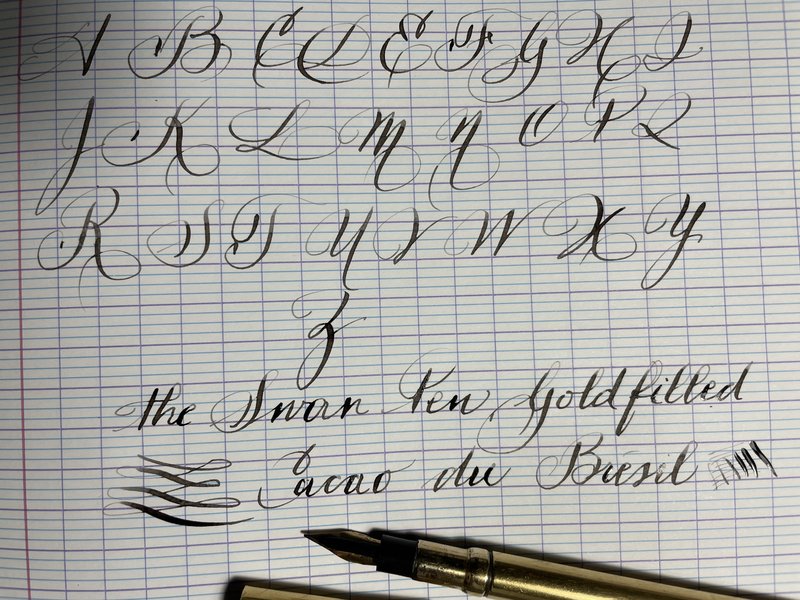 A B C D E F G H I
J K L M N O P Q
R S T U V W X Y
Z
the Swan Pen Goldfilled
Cacao du Brésil